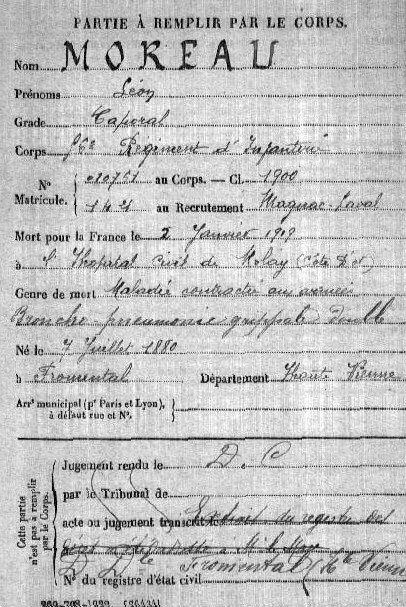 PARTIE À REMPLIR PAR LE CORPS.
Nom MOREAU
Prénoms Léon
Grade Caporal
Corps Régiment d'Infanterie
No Matricule. au Corps. — Cl. 1900
1421 au Recrutement Magnac-Laval
Mort pour la France le 2 Janvier 1919
à Hôpital Civil de (Côte d'Or)
Genre de mort Maladie contractée aux armées
Broncho pneumonie grippale double
Né le 7 Juillet 1880
à Fromental Département Haute Vienne
Arrt municipal (pr Paris et Lyon), à défaut rue et No.
Cette partie n'est pas à remplir par le Corps.
Jugement rendu le D. C
par le Tribunal de
acte ou jugement transcrit le Extrait du registre des
à M. le
Fromental (Hte Vienne
No du registre d'état civil